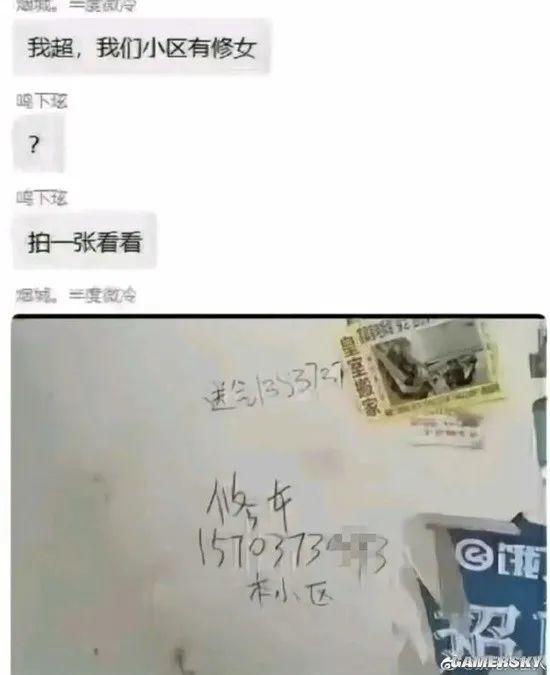 烟城。半度微冷
我超，我们小区有修女
鸣下玹
？
鸣下玹
拍一张看看
烟城。半度微冷
皇室搬家
送气1353727
修车
1570373 3
本小区
饿
招
GAMERSKY